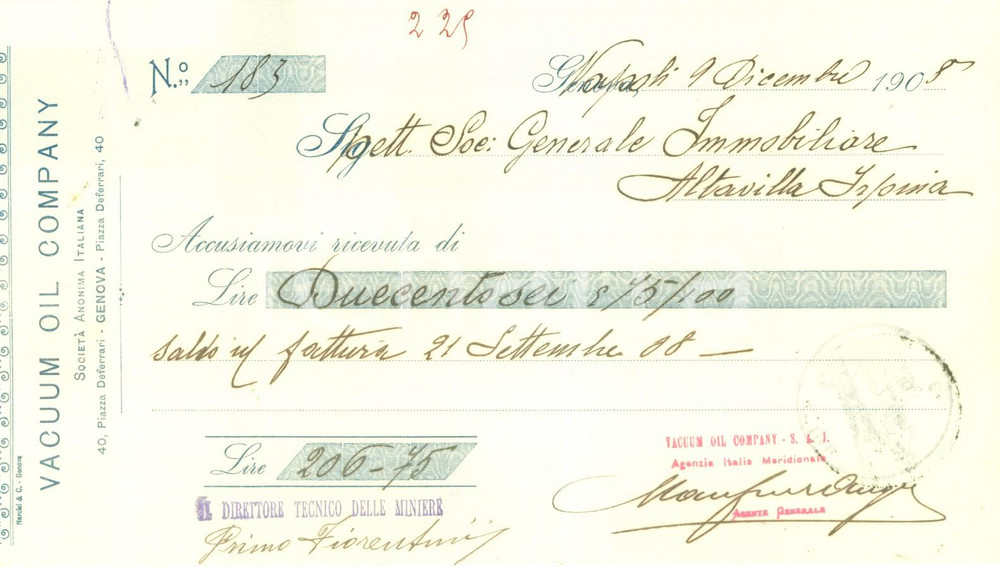 225
N.º 183
Napoli 9 Dicembre 1908
Spett. Soc: Generale Immobiliare
Altavilla Irpina
Accusiamovi ricevuta di
Lire Duecentosei e 75/100
saldo n/ fattura 21 Settembre 08 —
Lire 206-75
IL DIRETTORE TECNICO DELLE MINIERE
Primo Fiorentini
VACUUM OIL COMPANY - S. A. I.
Agenzia Italia Meridionale
AGENTE GENERALE
VACUUM OIL COMPANY
SOCIETÀ ANONIMA ITALIANA
40, Piazza Deferrari - GENOVA - Piazza Deferrari, 40